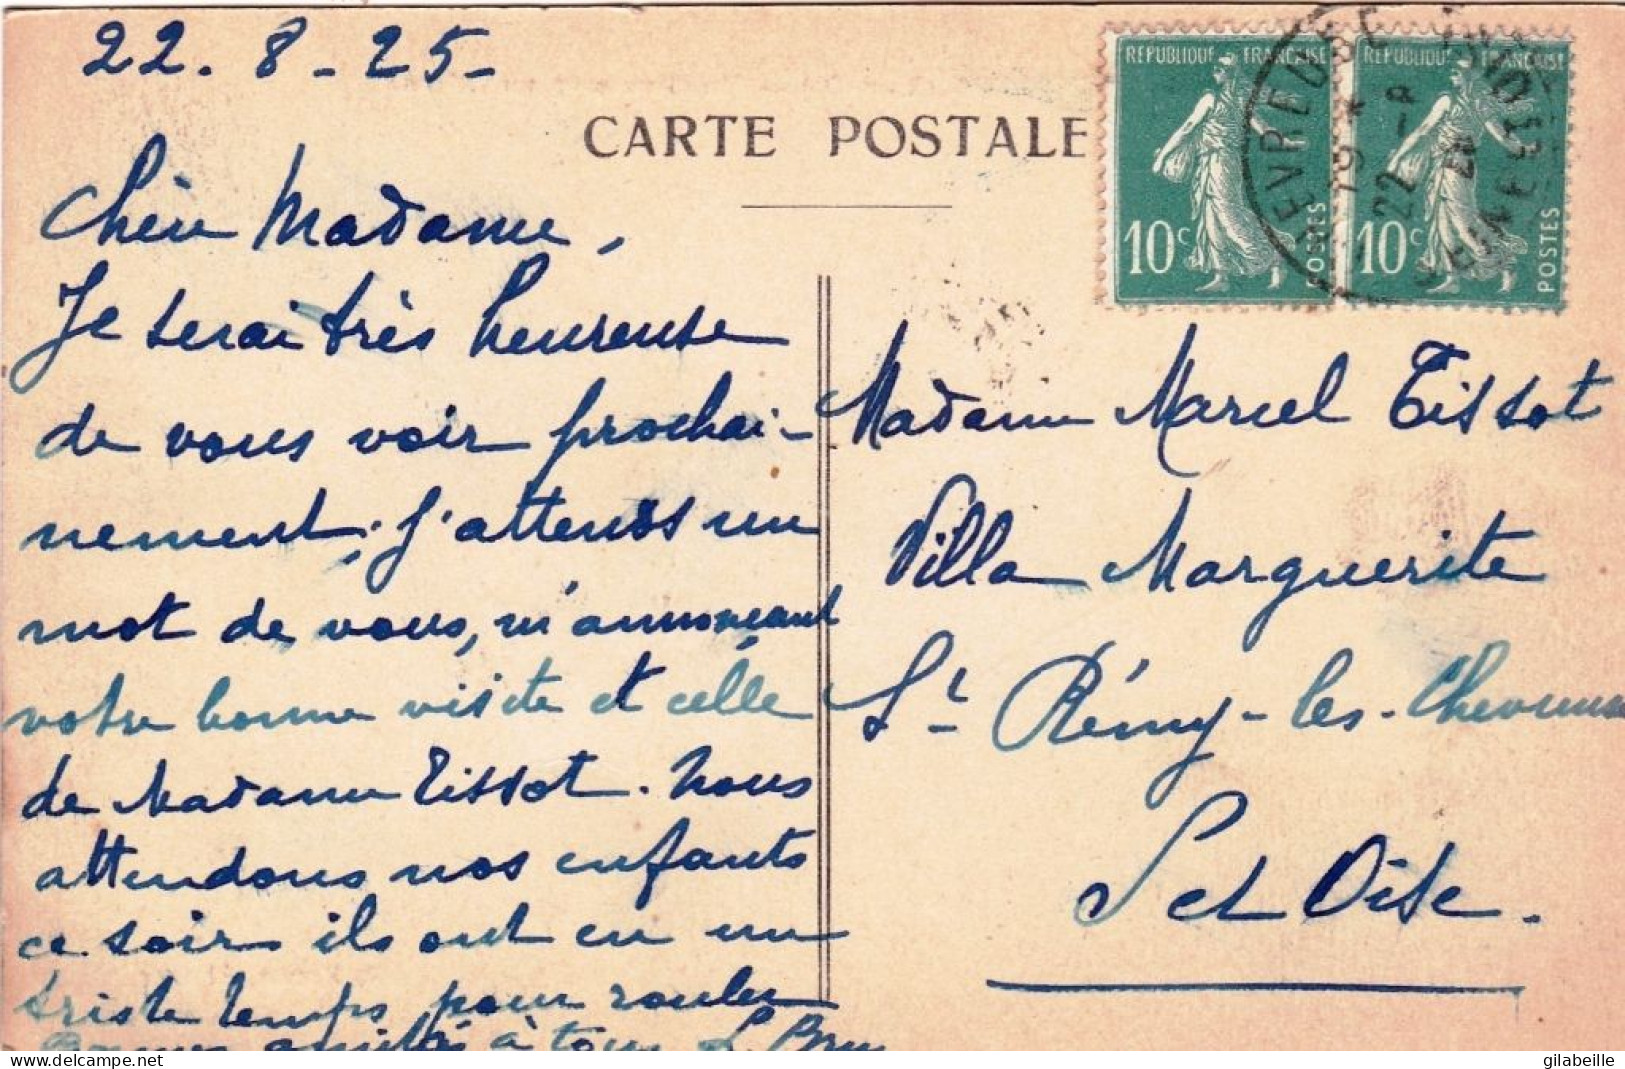 22.8-25-
CARTE POSTALE
REPUBLIQUE FRANÇAISE
10c
POSTES
REPUBLIQUE FRANÇAISE
10c
POSTES
Chère Madame,
Je serai très heureuse
de vous voir prochai-
nement. J'attends un
mot de vous, m'annonçant
votre bonne visite et celle
de Madame Tissot. Nous
attendons nos enfants
ce soir ils ont eu un
triste temps pour rouler
amitiés à tous
Madame Marcel Tissot
Villa Marguerite
St Rémy-les-Chevreuse
S et Oise.
delcampe.net
gilabeille